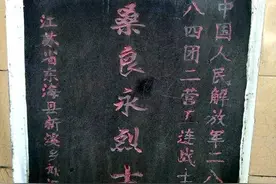 中国人民解放军一八
八四团二营丁连战士
桑良永烈士
江苏省东海县新溪乡